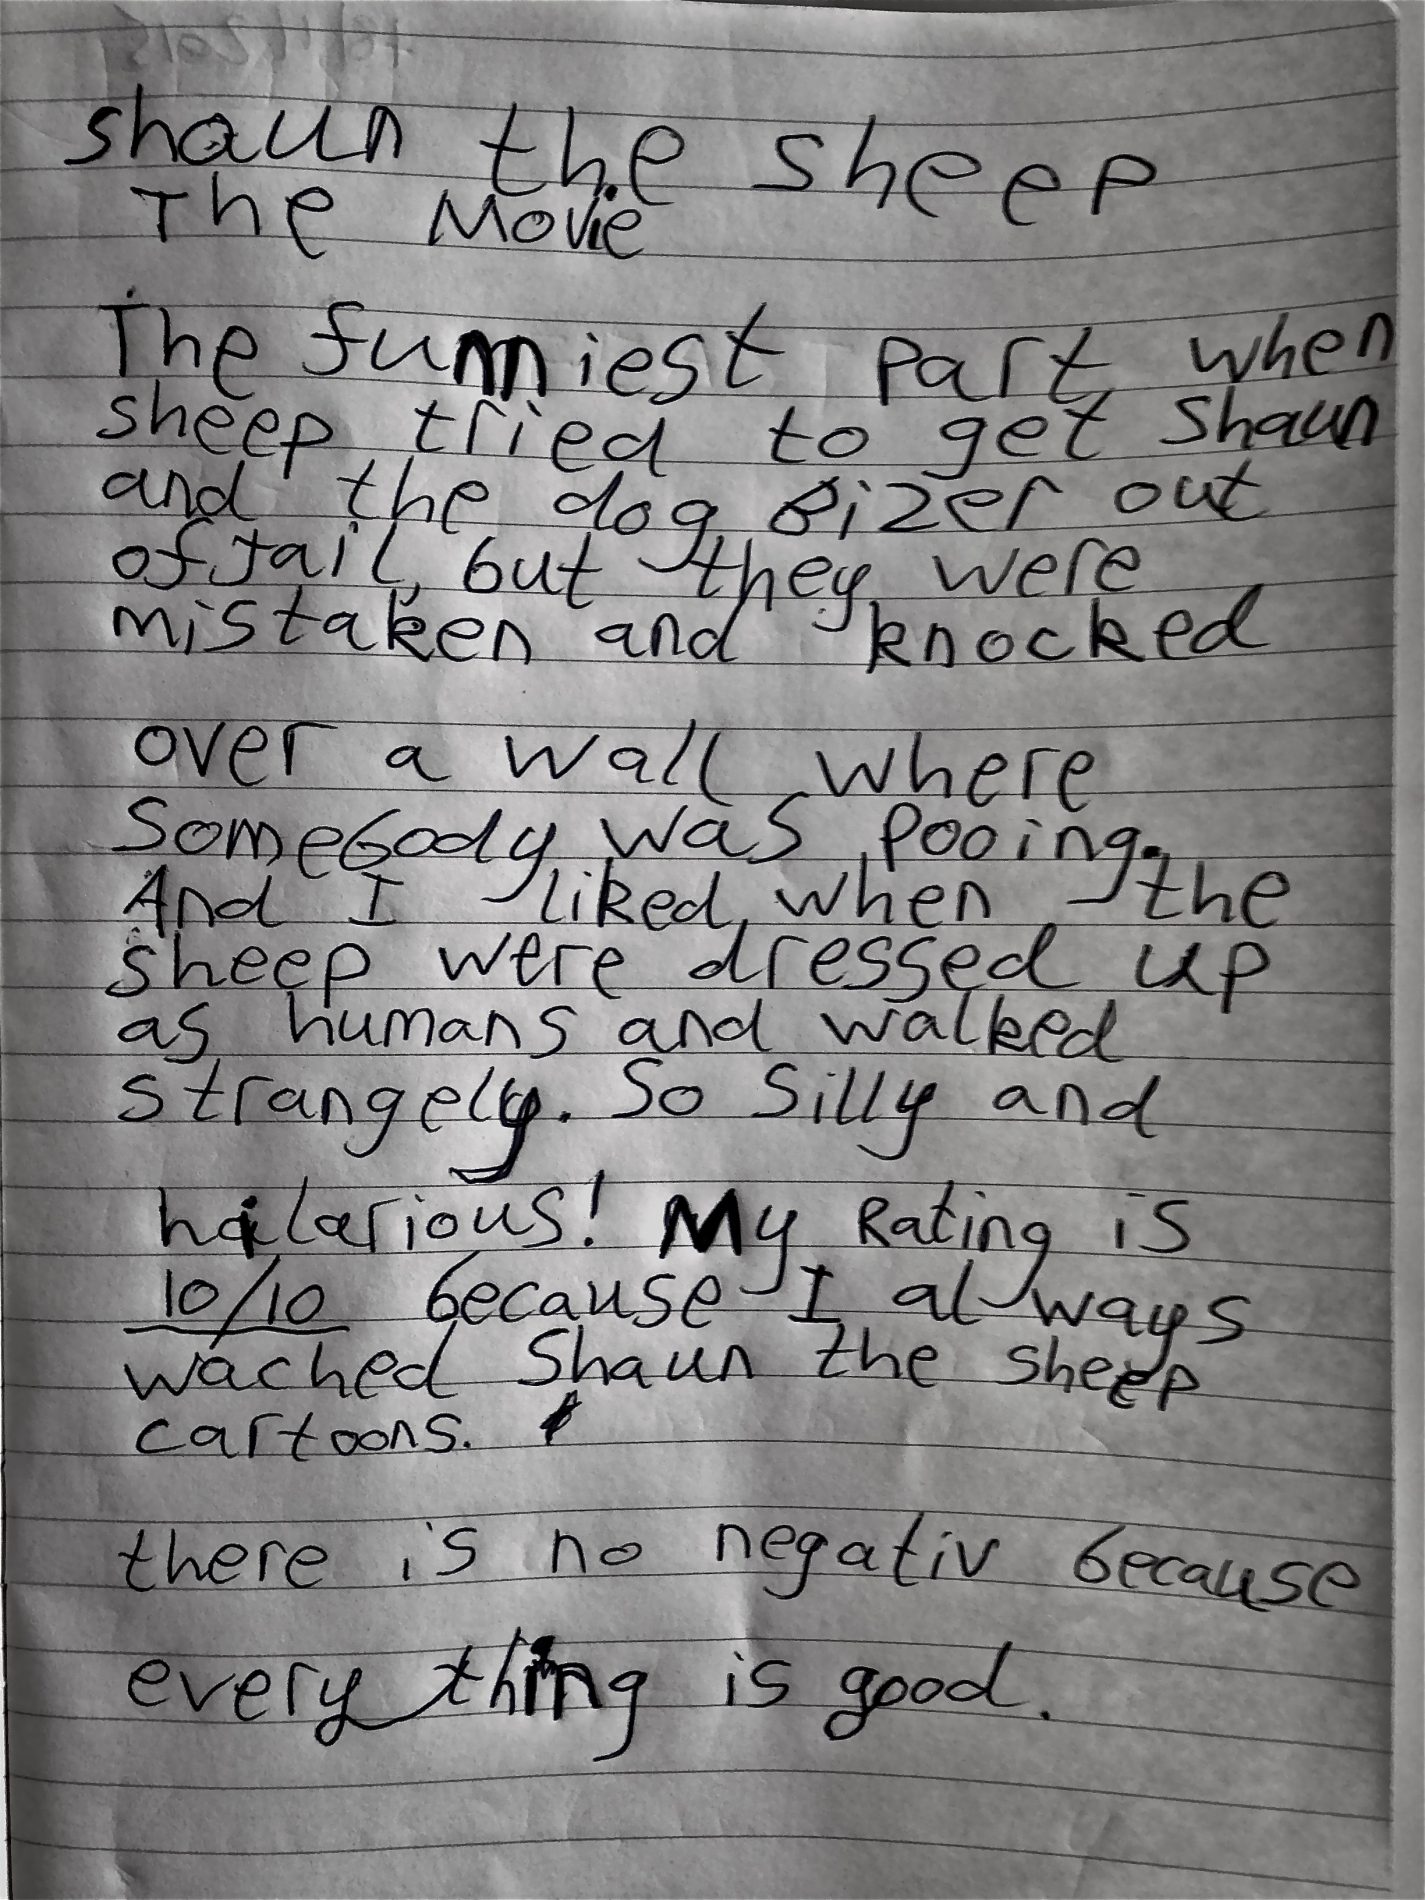 shaun the sheep
The Movie
The funniest part when
sheep tried to get Shaun
and the dog Bizer out
of Jail, but they were
mistaken and knocked
over a wall where
somebody was pooing.
And I liked when the
sheep were dressed up
as humans and walked
strangely. So silly and
hilarious! My Rating is
10/10 because I always
wached Shaun the sheep
cartoons.
there is no negativ because
every thing is good.